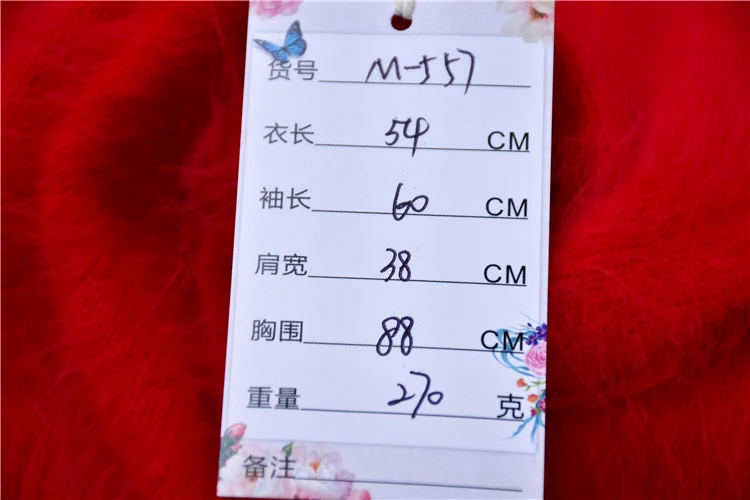 货号 M-557
衣长 54 CM
袖长 60 CM
肩宽 38 CM
胸围 88 CM
重量 270 克
备注